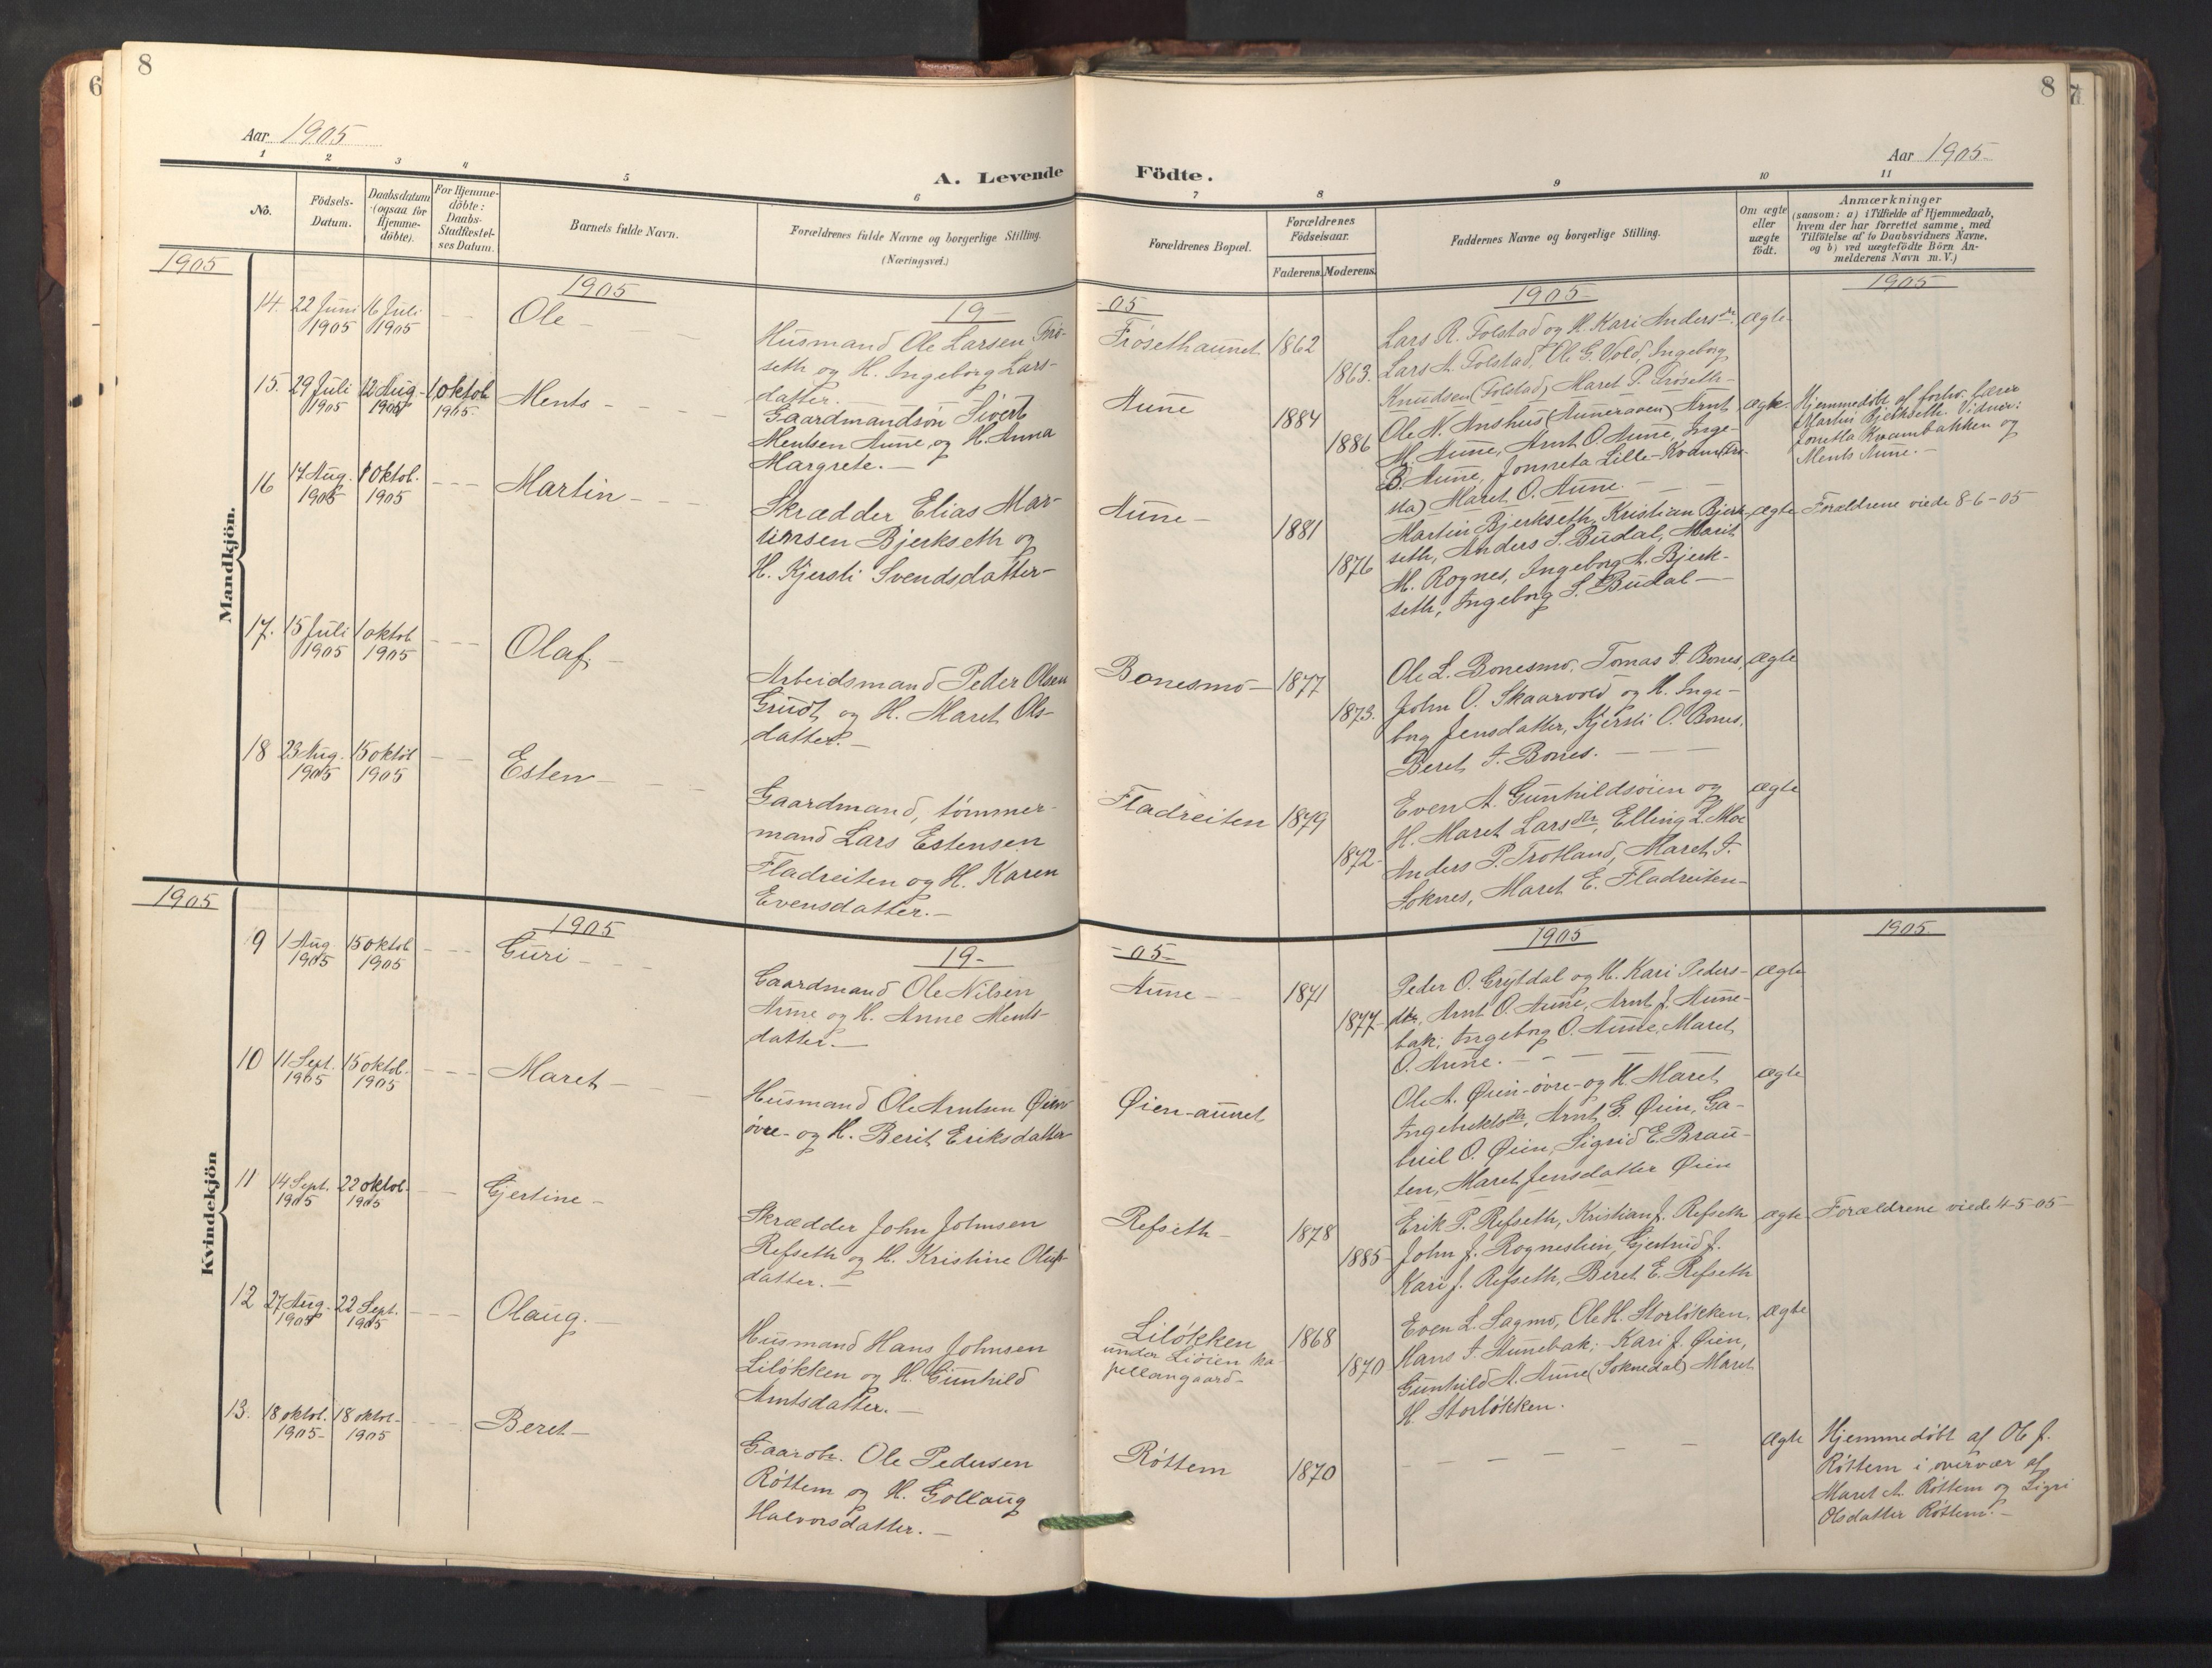 8
8
6
7
Aar 1905
Aar 1905
A. Levende Födte.
1
2
3
4
5
6
7
8
9
10
11
No.
Födsels-
Datum.
Daabsdatum
(ogsaa for
Hjemme-
döbte).
For Hjemme-
döbte:
Daabs-
Stadfæstel-
ses Datum.
Barnets fulde Navn.
Forældrenes fulde Navne og borgerlige Stilling.
(Næringsvei.)
Forældrenes Bopæl.
Forældrenes
Födselsaar.
Faderens.
Moderens.
Faddernes Navne og borgerlige Stilling.
Om ægte
eller
uægte
födt.
Anmærkninger
(saasom: a) i Tilfælde af Hjemmedaab,
hvem der har forrettet samme, med
Tilföielse af to Daabsvidners Navne,
og b) ved uægtefödte Börn An-
melderens Navn m. V.)
Mandkjön.
1905
1905
19-
-05
1905
1905
14.
22 Juni
1905
16 Juli
1905
Ole
Husmand Ole Larsen Frö-
seth og H. Ingeborg Lars-
datter.
Frösethaunet
1862
1863.
Lars R. Folstad og H. Kari Andersdr.
Lars A. Folstad, Ole G. Vold, Ingeborg
Knudsen (Folstad) Maret P. Fröseth-
ægte
15.
29 Juli
1905
12 Aug.
1905
1 oktob
1905
Ments
Gaardmandsön Sivert
Mentsen Aune, og H. Anna
Margrete.
Aune
1884
1886
Ole N. Anshus (Auneraaen) Arnt
M. Aune, Arnt O. Aune, Inge-
B. Aune, Jonneta Lille-
Maret O. Aune.
ægte.
Hjemmedöbt af forhv. lærer
Martin Bjerkseth. Vidner:
Jonetta Kvambakken og
Ments Aune.
16
17 Aug.
1905
1 Oktob.
1905
Martin
Skrædder Elias Mar-
tinsen Bjerkseth og
H. Kjersti Svendsdatter-
Aune
1881
1876
Martin Bjerkseth, Kristian Bjerk-
seth, Anders S. Budal, Marit
M. Rognes, Ingeborg A. Bjerk-
seth, Ingeborg S. Budal
ægte
Forældrene viede 8-6-05
17.
15 Juli
1905
1 oktob
1905
Olaf.
Arbeidsmand Peder Olsen
Grudt og H. Maret Ols-
datter.
Bonesmo
1877
1873.
Ole L. Bonesmo, Tomas I. Bones,
John O. Skaarvold og H. Inge-
borg Jensdatter, Kjersti O. Bones,
Beret I. Bones.
ægte
18
23 Aug.
1905
15 oktob
1905
Esten
Gaardmand, tömmer-
mand Lars Estensen
Fladreiten og H. Karen
Evensdatter.
Fladreiten
1879
1872
Even A. Gunhildsöien og
H. Maret Larsdtr, Elling L. Moe
Anders P. Trotland, Maret I.
Soknes, Maret E. Fladreiten-
ægte
Kvindekjön
1905
1905
19-
-05
1905
1905
9
1 Aug
1905
15 oktob
1905
Guri
Gaardmand Ole Nilsen
Aune og H. Anne Ments-
datter.
Aune
1871
1877
Peder O. Grytdal og H. Kari Peders-
dtr, Arnt O. Aune, Arnt J. Aune-
bak, Ingeborg O. Aune, Maret
O. Aune.
ægte
10
11 Sept.
1905
15 oktob.
1905
Maret
Husmand Ole Arntsen Øien
övre- og H. Berit Eriksdatter
Øien-aunet
Ole A. Øien-övre-og H. Maret
Ingebrektsdtr, Arnt G. Øien, Ga-
briel O. Øien, Sigrid E. Brau-
ten, Maret Jensdatter Øien
ægte
11
14 Sept.
1905
22 oktob.
1905
Gjertine
Skrædder John Johnsen
Refseth og H. Kristine Olufs-
datter.
Refseth
1878
1885
Erik P. Refseth, Kristian J. Refseth
John J. Rogneslien, Gjertrud J.
Kari J. Refseth, Beret E. Refseth
ægte
Forældrene viede 4-5-05
12
27 Aug.
1905
22 Sept.
1905
Olaug.
Husmand Hans Johnsen
Lilökken og H. Gunhild
Arntsdatter.
Lilökken
under Liöien ka-
pellangaard-
1868
1870
Even L. Sagmo, Ole H. Storlökken,
Hans I. Aunebak, Kari J. Øien,
Gunhild A. Aune (Soknedal) Maret
H. Storlökken.
ægte
13.
18 oktob.
1905
18 oktob.
1905
Beret
Gaardbr. Ole Pedersen
Röttem og H. Gollaug
Halvorsdatter.
Röttem
1870
ægte
Hjemmedöbt af Ole J.
Röttem i overvær af
Maret A. Röttem og Sigri
Olsdatter Röttem.